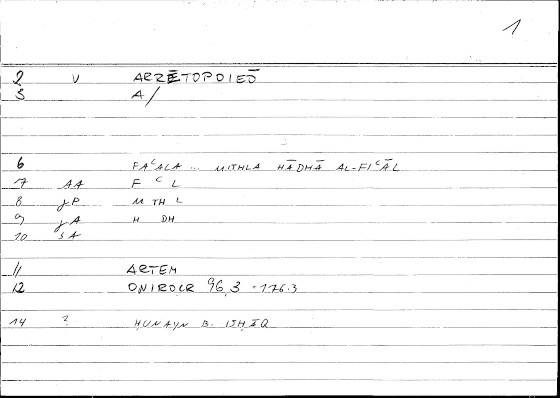 1
2 V ARRĒTOPOIEŌ
3 A/
6 FAᶜALA ... MITHLA HĀDHĀ AL-FIᶜĀL
7 AA F ᶜ L
8 JP M TH L
9 JA H DH
10 SA
11 ARTEM
12 ONIROCR 96,3 - 176.3
14 ? ḤUNAYN B. ISḤĀQ